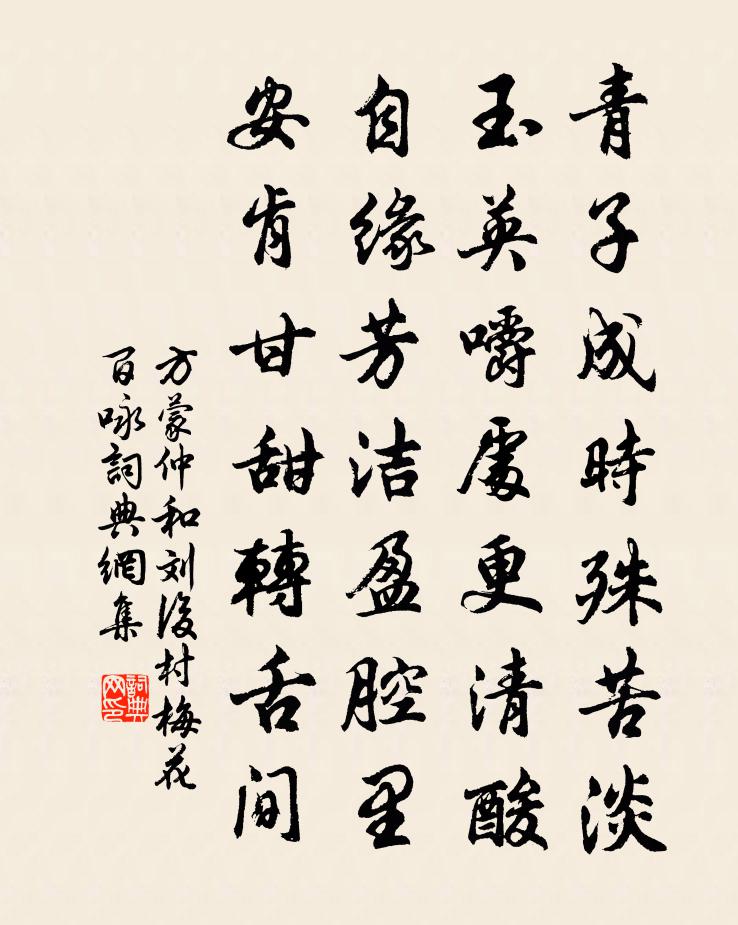 青子成時殊苦淡
玉英嚼處更清酸
自緣芳洁盈腔里
安肯甘甜轉舌間
方蒙仲和刘後村梅花
百咏詞典網集
詞典网印